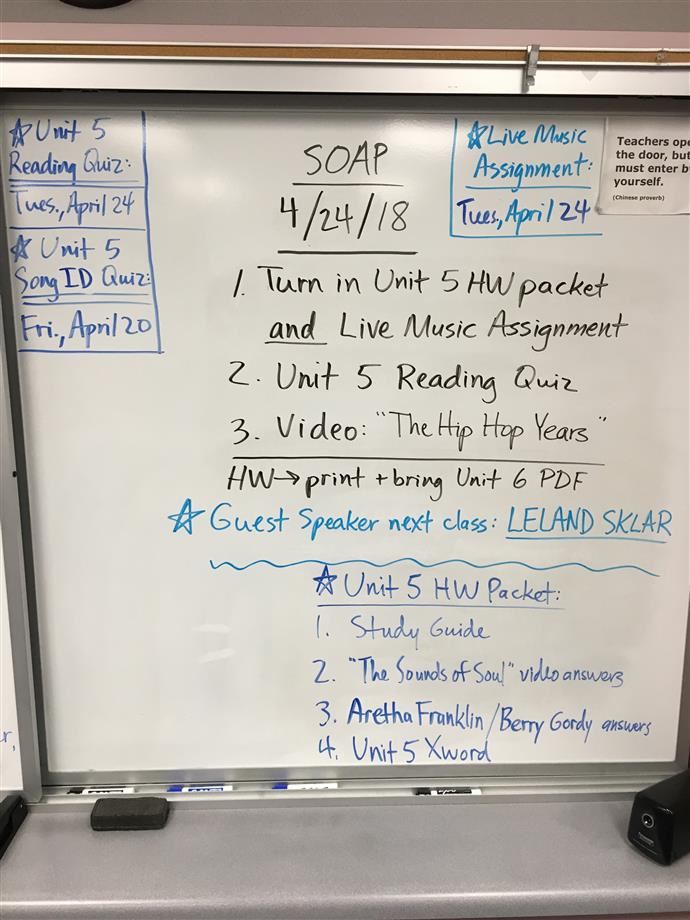 ☆Unit 5
Reading Quiz:
Tues., April 24
☆ Unit 5
Song ID Quiz:
Fri., April 20
SOAP
4/24/18
☆Live Music
Assignment:
Tues, April 24
Teachers ope
the door, but
must enter b
yourself.
(Chinese proverb)
1. Turn in Unit 5 HW packet
and Live Music Assignment
2. Unit 5 Reading Quiz
3. Video: "The Hip Hop Years"
HW→print + bring Unit 6 PDF
☆ Guest Speaker next class: LELAND SKLAR
☆ Unit 5 HW Packet:
1. Study Guide
2. "The Sounds of Soul" video answers
3. Aretha Franklin/Berry Gordy answers
4. Unit 5 Xword